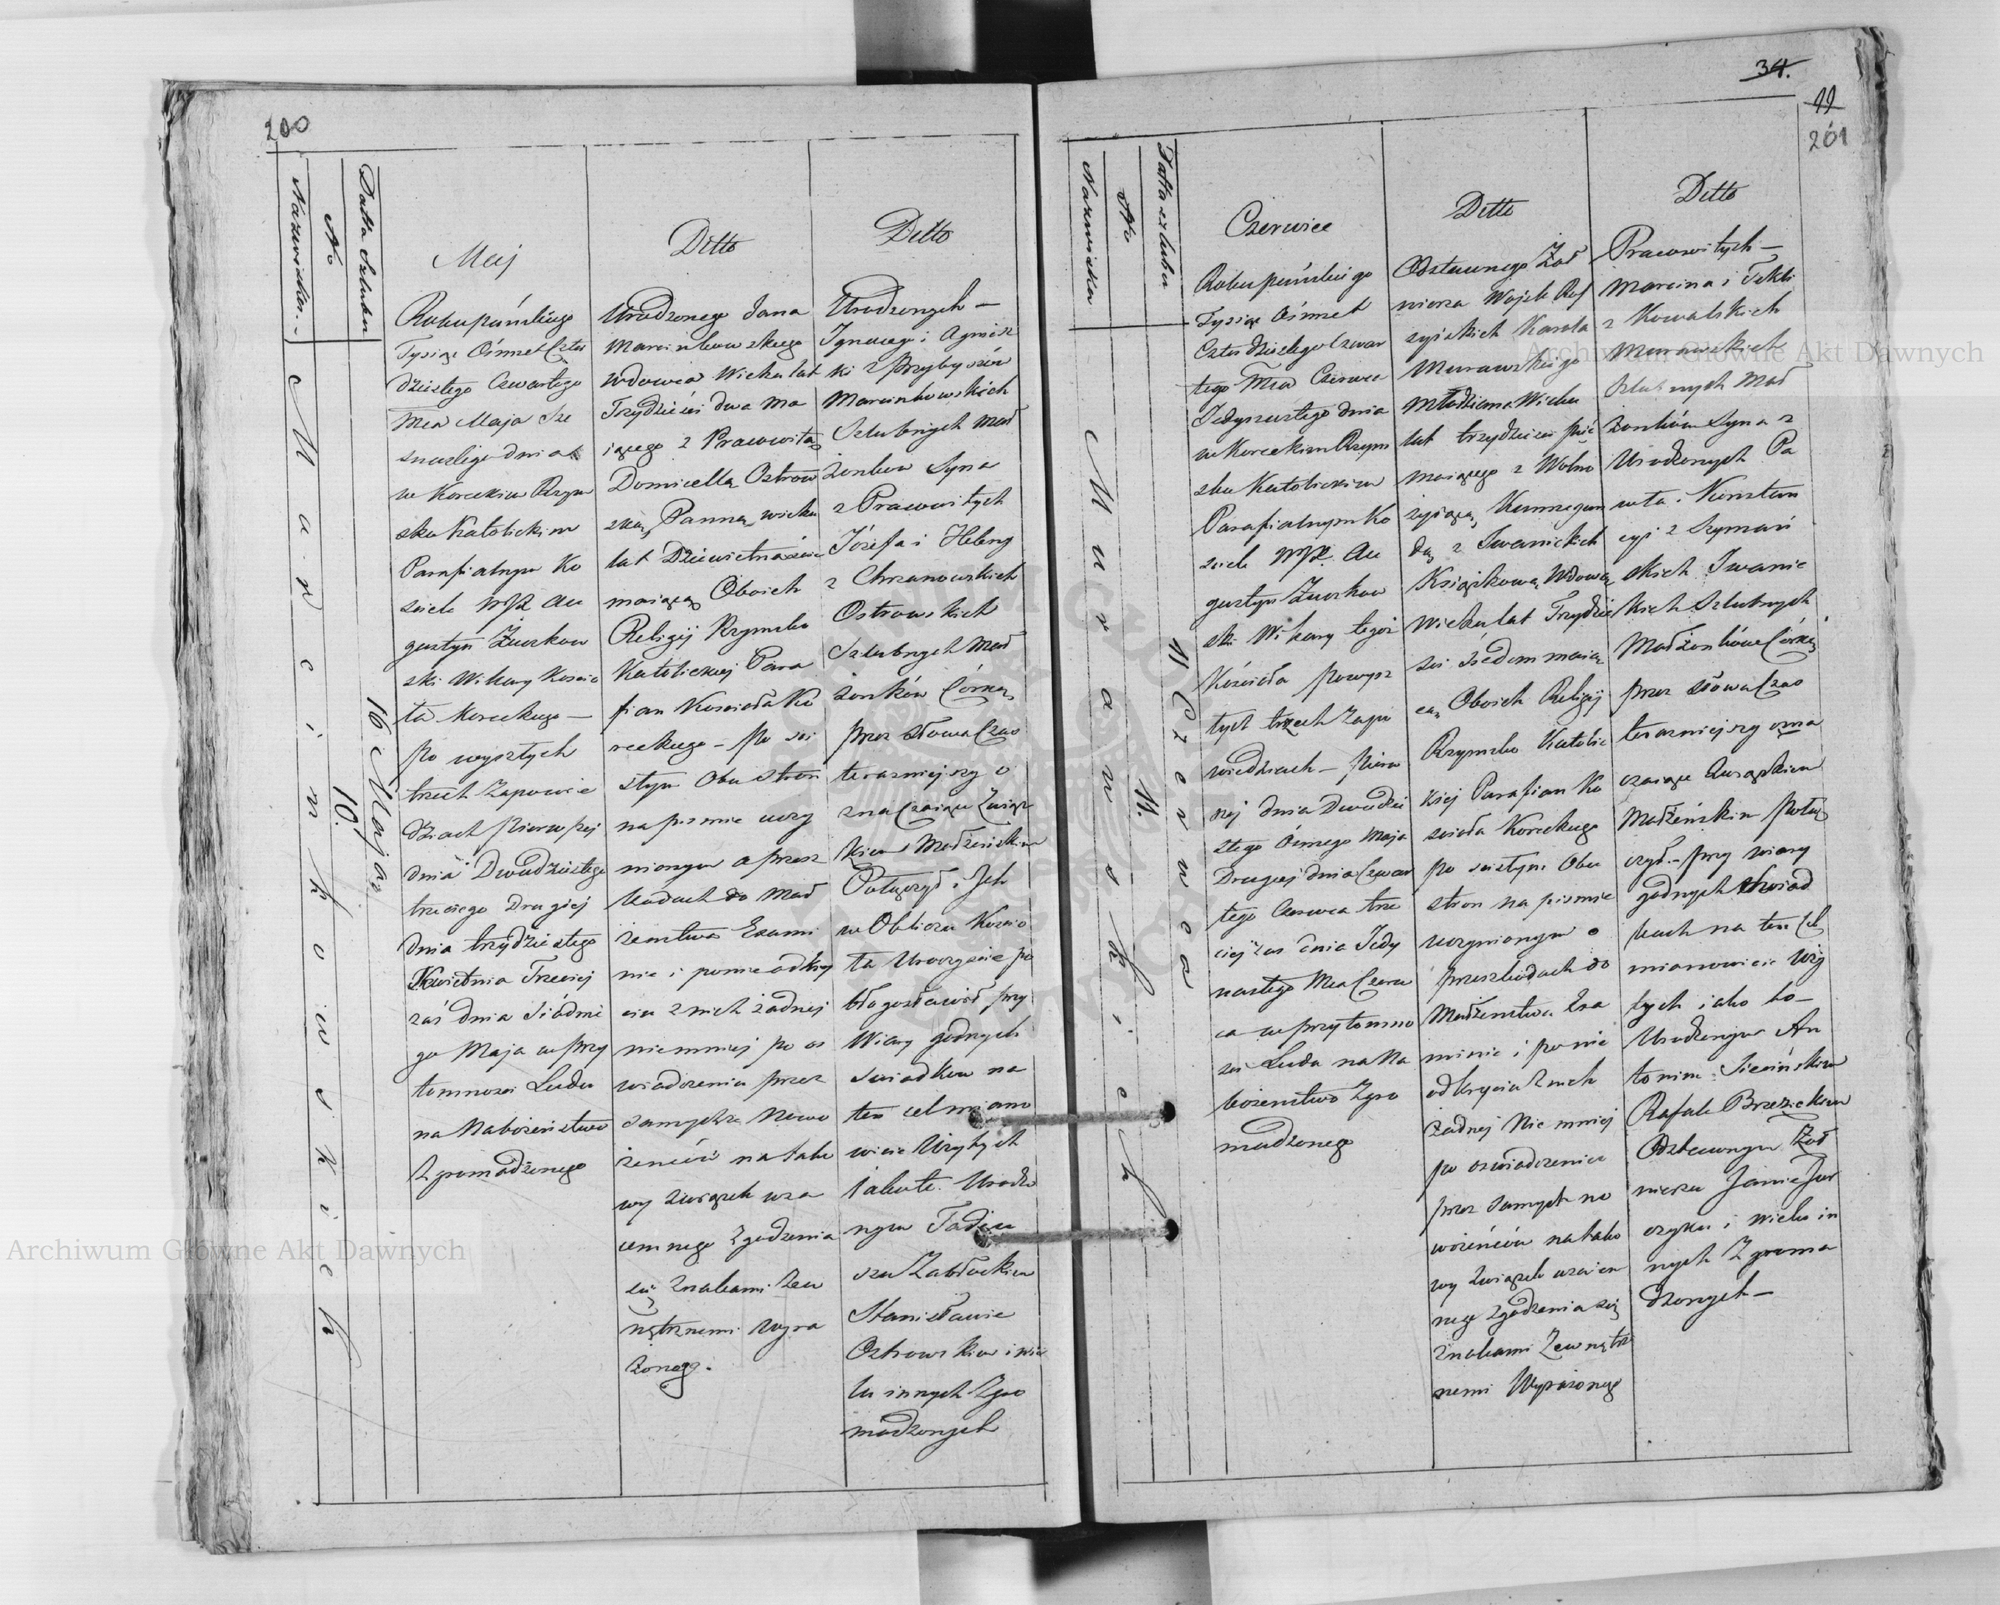 200
Data Szlubu
No
Nazwiska
16 Maja
10.
Marcinkowskich
Maj
Roku pańskiego
Tysiąc Ośmset Czter
dziestego Czwartego
Mca Maja Sze
snastego dnia
w Koreckim Rzym
sko Katolickim
Parafialnym Ko
sciele WJX Au
gustyn Żurkow
ski Wikary Koscio
ła Koreckiego —
po wyszłych
trzech Zapowie
dziach Pierwszej
dnia Dwudziestego
trzeciego Drugiej
dnia trzydziestego
Kwietnia Trzeciej
zaś dnia Siódme
go Maja w przy
tomnosci Ludu
na Nabożeństwo
Zgromadzonego
Ditto
Urodzonego Jana
Marcinkowskiego
Wdowca Wieku lat
Trzydzieści dwa Ma
iącego z Pracowitą
Domicellą Ostrow
ską Panną wieku
lat Dziewiętnaście
maiącą Oboich
Religij Rzymsko
Katolickiej Para
fian Kościoła Ko
reckiego — po sci
słym Obu stron
na pismie uczy
nionym o przesz
kodach do Mał
żenstwa Exami
nie i ponieodkry
ciu z nich żadnej
niemniej po os
wiadczeniu przez
samychże Nowo
żeńców na tako
wy związek wza
iemnego Zgodzenia
się Znakami Zew
nętrznemi wyra
żonego.
Ditto
Urodzonych —
Ignacego i Agniesz
ki z Przybyszów
Marcinkowskich
Szlubnych Mał
żonków Syna
z Pracowitych
Józefa i Heleny
z Chrzanowskich
Ostrowskich
Szlubnych Mał
żonków Córką
przez słowa Czas
teraźniejszy o
znaczaiące Związ
kiem Małżeńskim
Połączył i Ich
w Obliczu Koscio
ła Uroczyscie po
błogosławił przy
Wiary godnych
Swiadkow na
ten cel miano
wicie Użytych
iakoto. Urodzo
nym Tadeu
szu Zabłockim
Stanisławie
Ostrowskim i wie
lu innych Zgro
madzonych
34.
11
201
Data szlubu
No
Nazwiska
11 Czerwca
11.
Murawskich
Czerwiec
Roku pańskiego
Tysiąc Ośmset
Czterdziestego Czwar
tego Mca Czerwca
Jedynastego dnia
w Koreckim Rzym
sko Katolickim
Parafialnym Ko
sciele WJX. Au
gustyn Żurkow
ski Wikary tegoż
Kościoła po wysz
łych trzech Zapo
wiedziach — Pierw
szej dnia Dwudzie
stego Ósmego Maja
Drugiej dnia Czwar
tego Czerwca trze
ciej zas dnia Jedy
nastego Mca Czerw
ca w przytomno
sci Ludu na Na
bożenstwo Zgro
madzonego
Ditto
Odstawnego Żoł
nierza Wojsk Ros
syiskich Karola
Murawskiego
Młodziana Wieku
lat trzydzieści pięć
maiącego z Wolno
żyiącą Kunegun
dą z Iwanickich
Książkową Wdową
Wieku lat Trzydzie
sci siedem maiąc
cą Oboich Religij
Rzymsko Katolic
kiej Parafian Ko
scioła Koreckiego
po scisłym Obu
stron na pismie
uczynionym o
przeszkodach do
Małżenstwa Exa
minie i po nie
odkryciu z nich
żadnej Nie mniej
po oswiadczeniu
przez samych no
wożeńców na tako
wy związek wzaiem
nego zgodzenia się
znakami Zewnętrz
nemi Wyrażonego
Ditto
Pracowitych —
Marcina i Tekli
z Kowalskich
Murawskich
Szlubnych Mał
żonków Syna z
Urodzonych Pa
wła i Konstan
cyi z Szymań
skich Iwanic
kich Szlubnych
Małżonków Córką
przez słowa Czas
teraźniejszy ozna
czaiące Związkiem
Małżeńskim połą
czył — przy wiary
godnych Swiad
kach na ten cel
mianowicie Uży
tych iako to —
Urodzonym An
tonim Siecińskim
Rafale Brzezickim
Odstawnym Żoł
nierzu Janie Jur
czyku i wielu in
nych Zgroma
dzonych —
Archiwum Główne Akt Dawnych
Archiwum Główne Akt Dawnych